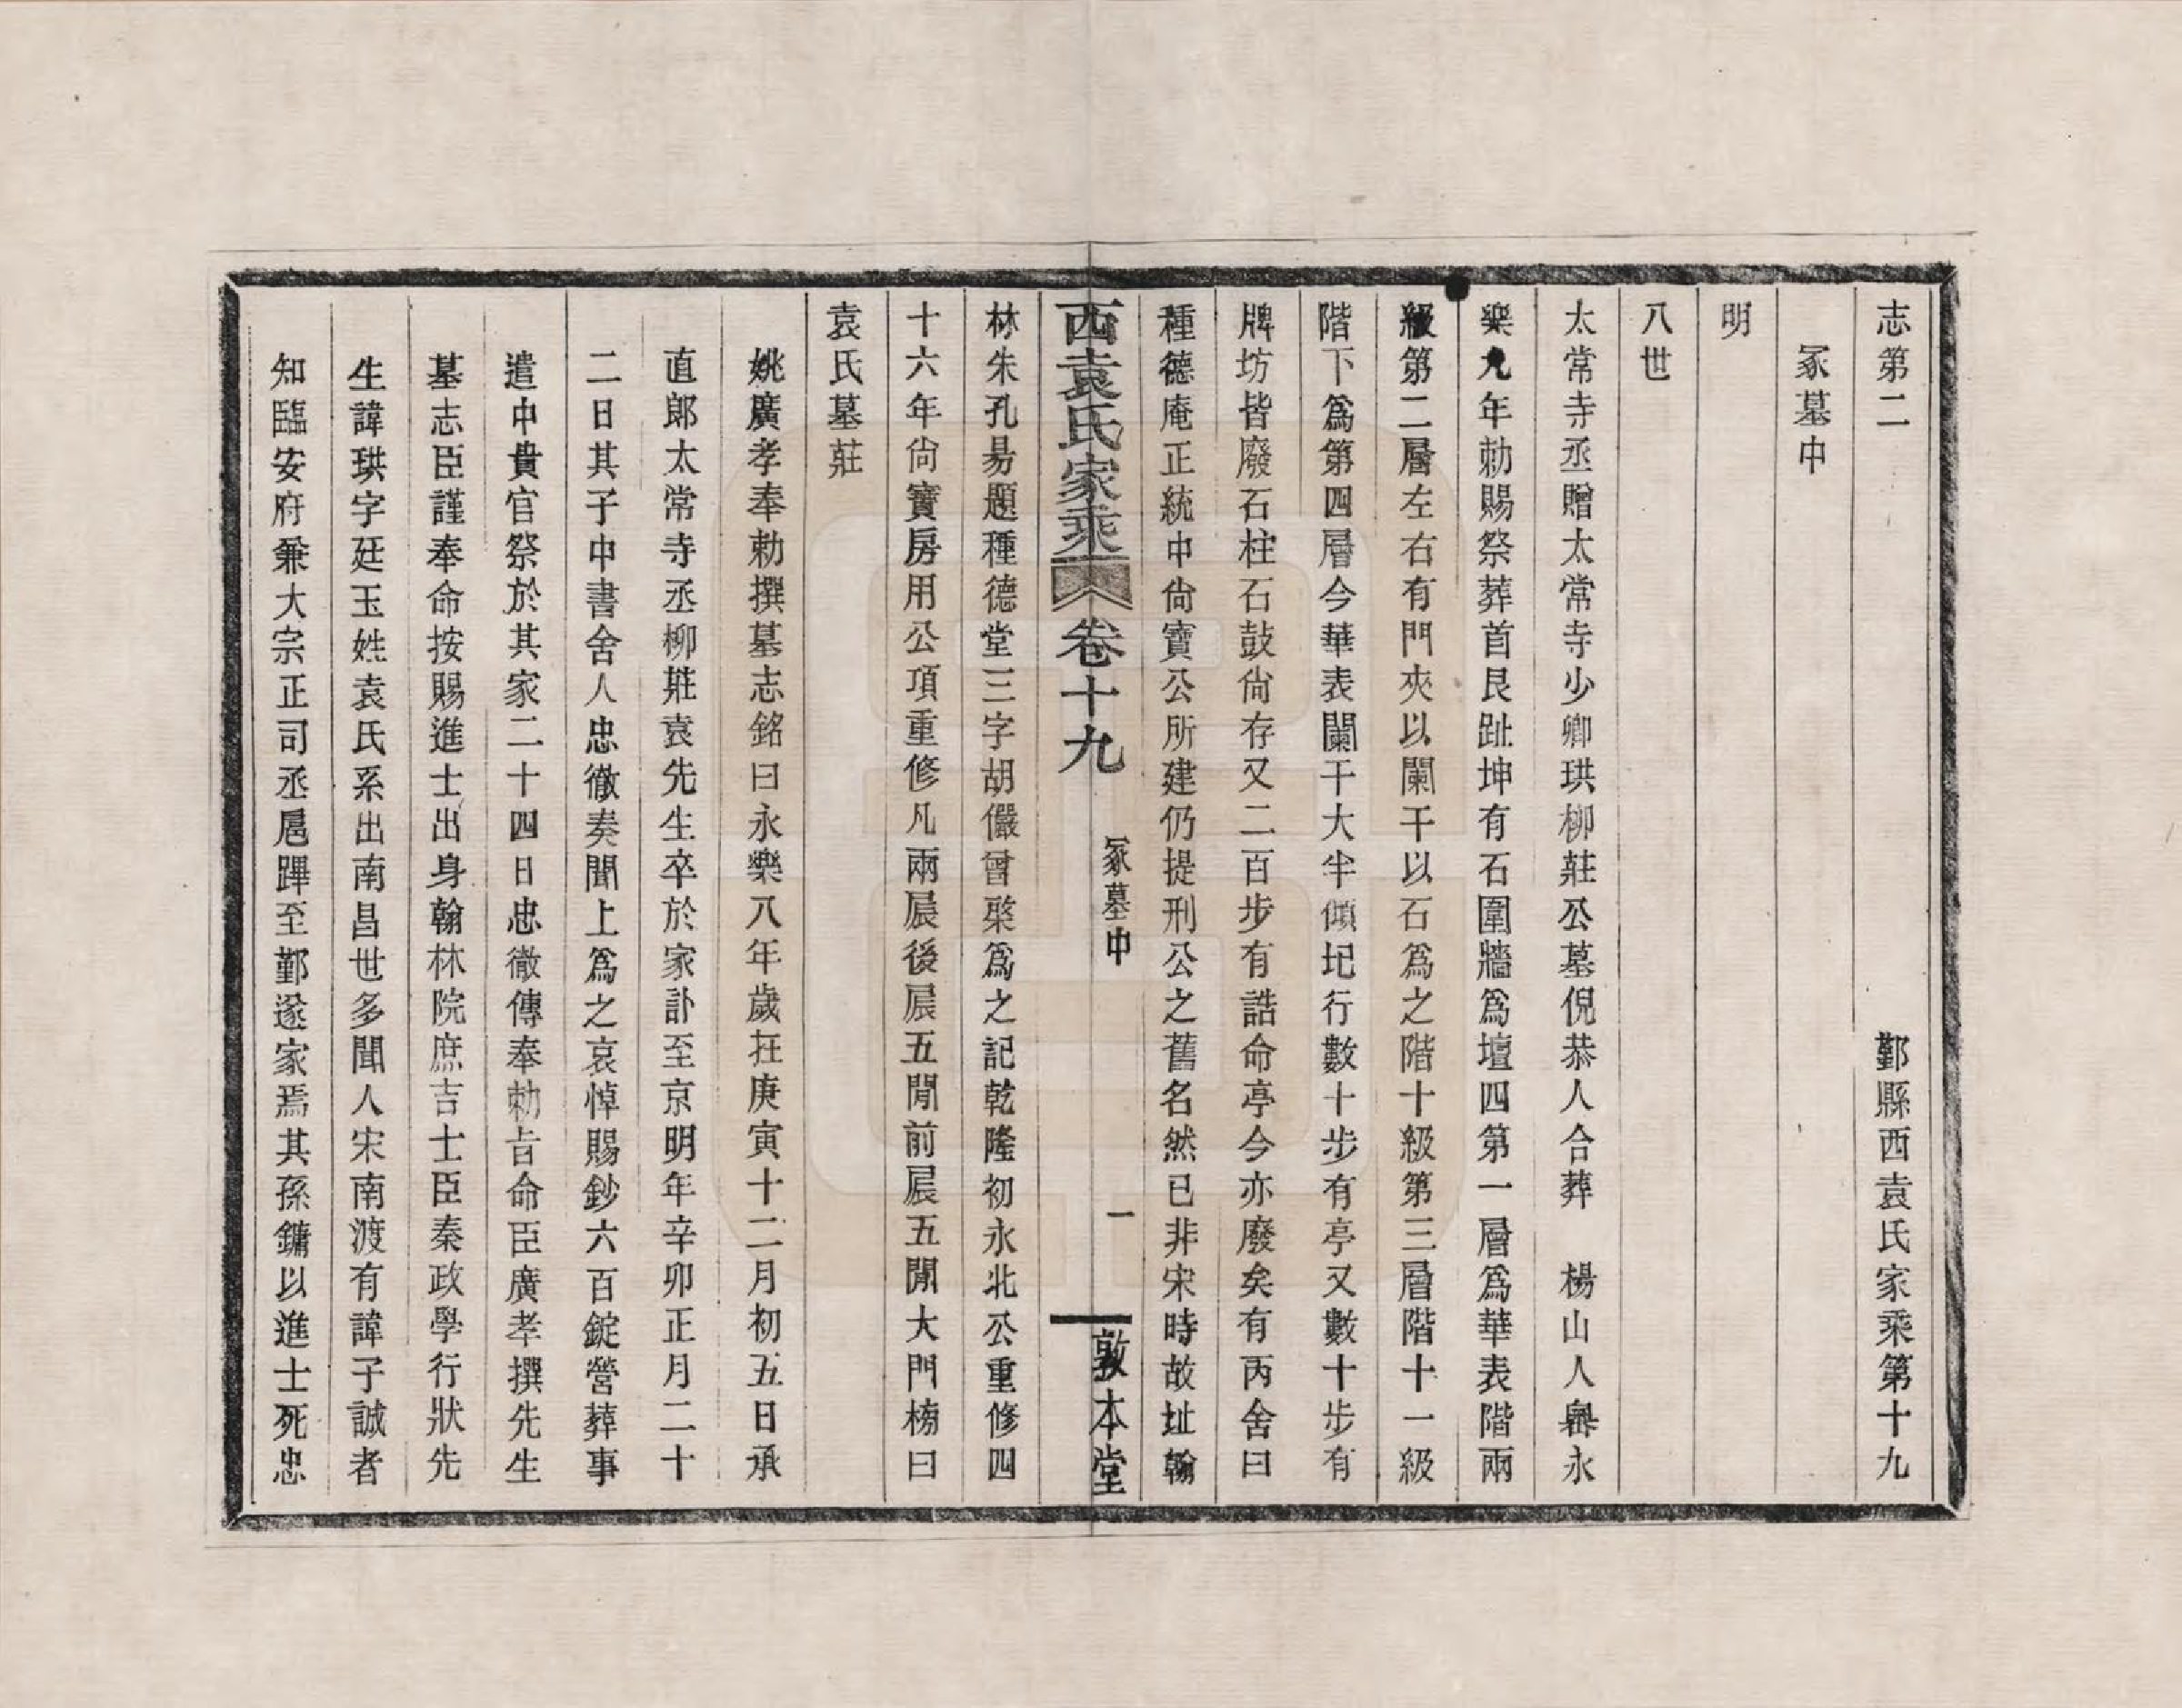 志第二　鄞縣西袁氏家乘第十九
冢墓中
明
八世
太常寺丞贈太常寺少卿珙柳莊公墓倪恭人合葬　楊山人嶴永
樂九年勅賜祭葬首艮趾坤有石圍牆爲壇四第一層爲華表階兩
級第二層左右有門夾以闌干以石爲之階十級第三層階十一級
階下爲第四層今華表闌干大半傾圮行數十步有亭又數十步有
牌坊皆廢石柱石鼓尙存又二百步有誥命亭今亦廢矣有丙舍曰
種德庵正統中尙寶公所建仍提刑公之舊名然已非宋時故址翰
西袁氏家乘　卷十九　冢墓中　一　敦本堂
林朱孔昜題種德堂三字胡儼曾棨爲之記乾隆初永北公重修四
十六年尙寶房用公項重修凡兩層後層五閒前層五閒大門榜曰
袁氏墓莊
姚廣孝奉勅撰墓志銘曰永樂八年歲在庚寅十二月初五日承
直郎太常寺丞柳莊袁先生卒於家訃至京明年辛卯正月二十
二日其子中書舍人忠徹奏聞上爲之哀悼賜鈔六百錠營葬事
遣中貴官祭於其家二十四日忠徹傳奉勅旨命臣廣孝撰先生
墓志臣謹奉命按賜進士出身翰林院庶吉士臣秦政學行狀先
生諱珙字廷玉姓袁氏系出南昌世多聞人宋南渡有諱子誠者
知臨安府兼大宗正司丞扈蹕至鄞遂家焉其孫鏞以進士死忠